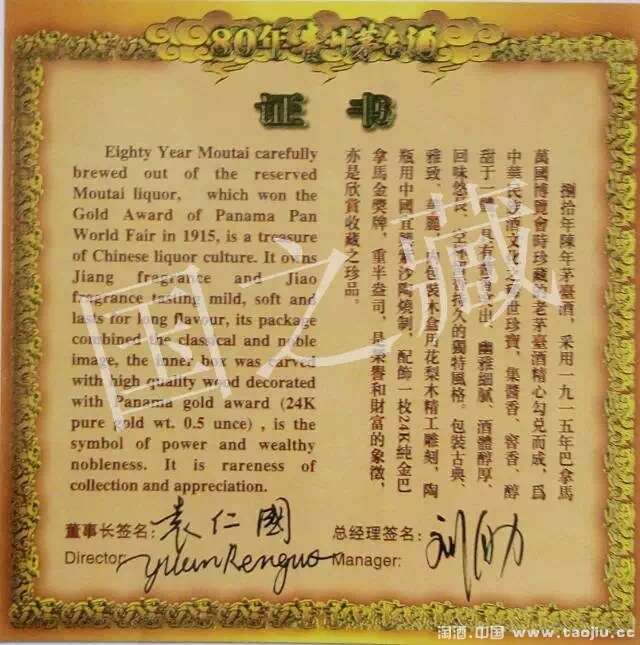 80年贵州茅台酒
证书
Eighty Year Moutai carefully
brewed out of the reserved
Moutai liquor, which won the
Gold Award of Panama Pan
World Fair in 1915, is a treasure
of Chinese liquor culture. It owns
Jiang fragrance and Jiao
fragrance tasting mild, soft and
lasts for long flavour, its package
combined the classical and noble
image, the inner box was carved
with high quality wood decorated
with Panama gold award (24K
pure gold wt. 0.5 unce) , is the
symbol of power and wealthy
nobleness. It is rareness of
collection and appreciation.
捌拾年陳年茅臺酒，采用一九一五年巴拿馬
萬國博覽會時珍藏的老茅臺酒精心勾兑而成，爲
中華民族酒文化之稀世珍寶，集醬香、窖香、醇
甜于一體，具有醬香突出、幽雅細膩、酒體醇厚、
回味悠長、空杯留香持久的獨特風格。包裝古典、
雅致、華麗，内包裝木盒用花梨木精工雕刻，陶
瓶用中國宜興紫沙陶燒制，配飾一枚24K純金巴
拿馬金獎牌，重半盎司，是榮譽和財富的象徵，
亦是欣賞收藏之珍品。
国之藏
董事长签名: 袁仁國
Director: yuan Renguo
总经理签名:
Manager:
淘酒.中国 www.taojiu.cc